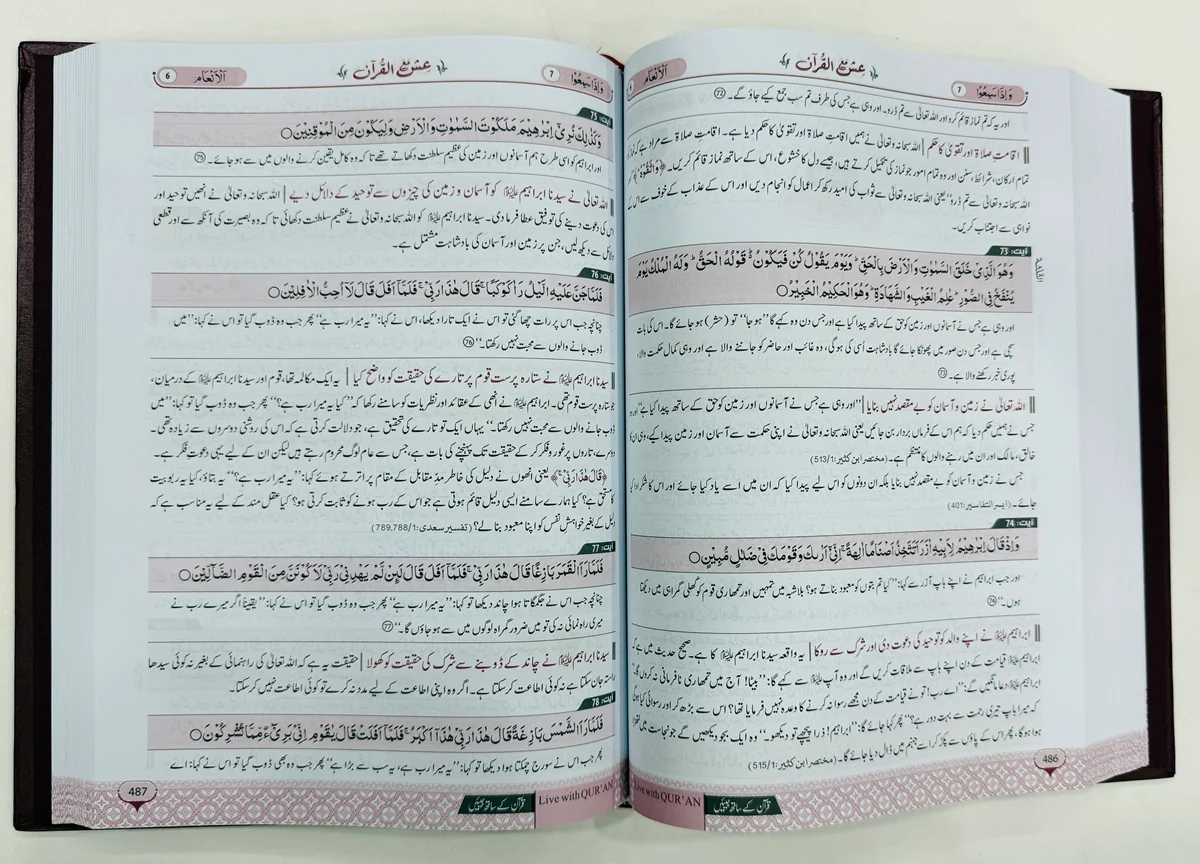 وَاِذَا سَمِعُوْا
7
عشق مع القرآن
اَلْاَنْعَام
6
اور یہ کہ تم نماز قائم کرو اور اللہ تعالیٰ سے تم ڈرو۔ اور وہی ہے جس کی طرف تم سب جمع کیے جاؤ گے۔ 72
اقامتِ صلاۃ اور تقویٰ کا حکم | اللہ سبحانہ وتعالیٰ نے ہمیں اقامتِ صلاۃ اور تقویٰ کا حکم دیا ہے۔ اقامتِ صلاۃ سے مراد ہے کہ
تمام ارکان، شرائط، سنن اور وہ تمام امور جو نماز کی تکمیل کرتے ہیں، جیسے دل کا خشوع، اس کے ساتھ نماز قائم کریں۔ ﴿وَاتَّقُوْهُ﴾
اللہ سبحانہ وتعالیٰ سے تم ڈرو“ یعنی اللہ سبحانہ وتعالیٰ سے ثواب کی امید رکھ کر اعمال کو انجام دیں اور اس کے عذاب کے خوف سے اس کے
نواہی سے اجتناب کریں۔
آیت: 73
وَهُوَ الَّذِيْ خَلَقَ السَّمٰوٰتِ وَالْاَرْضَ بِالْحَقِّ ۭ وَيَوْمَ يَقُوْلُ كُنْ فَيَكُوْنُ ۭ قَوْلُهُ الْحَقُّ ۭ وَلَهُ الْمُلْكُ يَوْمَ
يُنْفَخُ فِي الصُّوْرِ ۭ عٰلِمُ الْغَيْبِ وَالشَّهَادَةِ ۭ وَهُوَ الْحَكِيْمُ الْخَبِيْرُ
اور وہی ہے جس نے آسمانوں اور زمین کو حق کے ساتھ پیدا کیا ہے اور جس دن وہ کہے گا ”ہو جا“ تو (حشر) ہو جائے گا۔ اس کی بات
سچی ہے اور جس دن صور میں پھونکا جائے گا بادشاہت اسی کی ہوگی، وہ غائب اور حاضر کو جاننے والا ہے اور وہی کمال حکمت والا،
پوری خبر رکھنے والا ہے۔ 73
اللہ تعالیٰ نے زمین و آسمان کو بے مقصد نہیں بنایا | ”اور وہی ہے جس نے آسمانوں اور زمین کو حق کے ساتھ پیدا کیا ہے“
جس نے ہمیں حکم دیا کہ ہم اس کے فرماں بردار بن جائیں یعنی اللہ سبحانہ وتعالیٰ نے اپنی حکمت سے آسمان اور زمین پیدا کیے، وہی ان کا
خالق، مالک اور ان میں رہنے والوں کا منتظم ہے۔ (مختصر ابن کثیر: 513/1)
جس نے زمین و آسمان کو بے مقصد نہیں بنایا بلکہ ان دونوں کو اس لیے پیدا کیا کہ ان میں اسے یاد کیا جائے اور اس کا شکر ادا کیا
جائے۔ (ایسر التفاسیر: 401)
آیت: 74
وَاِذْ قَالَ اِبْرٰهِيْمُ لِاَبِيْهِ اٰزَرَ اَتَتَّخِذُ اَصْنَامًا اٰلِهَةً ۚ اِنِّيْٓ اَرٰىكَ وَقَوْمَكَ فِيْ ضَلٰلٍ مُّبِيْنٍ
اور جب ابراہیم نے اپنے باپ آزر سے کہا: ”کیا تم بتوں کو معبود بناتے ہو؟ بلاشبہ میں تمہیں اور تمہاری قوم کو کھلی گمراہی میں دیکھتا
ہوں۔“ 74
ابراہیم علیہ السلام نے اپنے والد کو توحید کی دعوت دی اور شرک سے روکا | یہ واقعہ سیدنا ابراہیم علیہ السلام کا ہے۔ صحیح حدیث میں ہے کہ
ابراہیم علیہ السلام قیامت کے دن اپنے باپ سے ملاقات کریں گے اور وہ آپ علیہ السلام سے کہے گا: ”بیٹا! آج میں تمہاری نافرمانی نہ کروں گا۔“
ابراہیم دعا مانگیں گے: ”اے رب! تو نے قیامت کے دن مجھے رسوا نہ کرنے کا وعدہ نہیں فرمایا تھا؟ اس سے بڑھ کر اور رسوائی کیا ہوگی
کہ میرا باپ تیری رحمت سے بہت دور ہے؟“ پھر کہا جائے گا: ”ابراہیم! ذرا پیچھے تو دیکھو۔“ وہ ایک بجو دیکھیں گے جو نجاست میں لتھڑا
ہوا ہوگا، پھر اس کے پاؤں سے پکڑ کر اسے جہنم میں ڈال دیا جائے گا۔ (مختصر ابن کثیر: 515/1)
486
قرآن کے ساتھ جئیں
Live with QUR'AN
وَاِذَا سَمِعُوْا
7
عشق مع القرآن
اَلْاَنْعَام
6
آیت: 75
وَكَذٰلِكَ نُرِيْٓ اِبْرٰهِيْمَ مَلَكُوْتَ السَّمٰوٰتِ وَالْاَرْضِ وَلِيَكُوْنَ مِنَ الْمُوْقِنِيْنَ
اور ابراہیم کو اسی طرح ہم آسمانوں اور زمین کی عظیم سلطنت دکھاتے تھے تاکہ وہ کامل یقین کرنے والوں میں سے ہو جائے۔ 75
اللہ تعالیٰ نے سیدنا ابراہیم علیہ السلام کو آسمان و زمین کی چیزوں سے توحید کے دلائل دیے | اللہ سبحانہ وتعالیٰ نے انھیں توحید اور
اس کی دعوت دینے کی توفیق عطا فرما دی۔ سیدنا ابراہیم علیہ السلام کو اللہ سبحانہ وتعالیٰ نے عظیم سلطنت دکھائی تاکہ وہ بصیرت کی آنکھ سے اور قطعی
دلائل سے دیکھ لیں، جن پر زمین اور آسمان کی بادشاہت مشتمل ہے۔
آیت: 76
فَلَمَّا جَنَّ عَلَيْهِ الَّيْلُ رَاٰ كَوْكَبًا ۚ قَالَ هٰذَا رَبِّيْ ۚ فَلَمَّآ اَفَلَ قَالَ لَآ اُحِبُّ الْاٰفِلِيْنَ
چنانچہ جب اس پر رات چھا گئی تو اس نے ایک تارا دیکھا، اس نے کہا: ”یہ میرا رب ہے“ پھر جب وہ ڈوب گیا تو اس نے کہا: ”میں
ڈوب جانے والوں سے محبت نہیں رکھتا۔“ 76
سیدنا ابراہیم علیہ السلام نے ستارہ پرست قوم پر تارے کی حقیقت کو واضح کیا | یہ ایک مکالمہ تھا، قوم اور سیدنا ابراہیم علیہ السلام کے درمیان،
جو ستارہ پرست قوم تھی۔ ابراہیم علیہ السلام نے انھی کے عقائد اور نظریات کو سامنے رکھا کہ ”کیا یہ میرا رب ہے؟“ پھر جب وہ ڈوب گیا تو کہا: ”میں
ڈوب جانے والوں سے محبت نہیں رکھتا۔“ یہاں ایک تو تارے کی تحقیق ہے، جو دلالت کرتی ہے کہ اس کی روشنی دوسروں سے زیادہ تھی۔
دوسرے، تاروں پر غور و فکر کر کے حقیقت تک پہنچنے کی بات ہے، جس سے عام لوگ محروم رہتے ہیں لیکن ان کے لیے یہی دعوتِ فکر ہے۔
﴿قَالَ هٰذَا رَبِّيْ﴾ یعنی انھوں نے دلیل کی خاطر مدِ مقابل کے مقام پر اترتے ہوئے کہا: ”یہ میرا رب ہے؟“ یہ بتاؤ، کیا یہ ربوبیت
کا مستحق ہے؟ کیا ہمارے سامنے ایسی دلیل قائم ہوتی ہے جو اس کے رب ہونے کو ثابت کرتی ہو؟ کیا عقل مند کے لیے یہ مناسب ہے کہ
دلیل کے بغیر خواہشِ نفس کو اپنا معبود بنا لے؟ (تفسیر سعدی: 789,788/1)
آیت: 77
فَلَمَّا رَاَ الْقَمَرَ بَازِغًا قَالَ هٰذَا رَبِّيْ ۚ فَلَمَّآ اَفَلَ قَالَ لَىِٕنْ لَّمْ يَهْدِنِيْ رَبِّيْ لَاَكُوْنَنَّ مِنَ الْقَوْمِ الضَّآلِّيْنَ
چنانچہ جب اس نے جگمگاتا ہوا چاند دیکھا تو کہا: ”یہ میرا رب ہے“ پھر جب وہ ڈوب گیا تو اس نے کہا: ”یقیناً اگر میرے رب نے
میری راہ نمائی نہ کی تو میں ضرور گمراہ لوگوں میں سے ہو جاؤں گا۔“ 77
سیدنا ابراہیم علیہ السلام نے چاند کے ڈوبنے سے شرک کی حقیقت کو کھولا | حقیقت یہ ہے کہ اللہ تعالیٰ کی راہنمائی کے بغیر نہ کوئی سیدھا
راستہ جان سکتا ہے نہ کوئی اطاعت کر سکتا ہے۔ اگر وہ اپنی اطاعت کے لیے مدد نہ کرے تو کوئی اطاعت نہیں کر سکتا۔
آیت: 78
فَلَمَّا رَاَ الشَّمْسَ بَازِغَةً قَالَ هٰذَا رَبِّيْ هٰذَآ اَكْبَرُ ۚ فَلَمَّآ اَفَلَتْ قَالَ يٰقَوْمِ اِنِّيْ بَرِيْۗءٌ مِّمَّا تُشْرِكُوْنَ
پھر جب اس نے سورج چمکتا ہوا دیکھا تو کہا: ”یہ میرا رب ہے، یہ سب سے بڑا ہے“ پھر جب وہ بھی ڈوب گیا تو اس نے کہا: اے
487
قرآن کے ساتھ جئیں
Live with QUR'AN